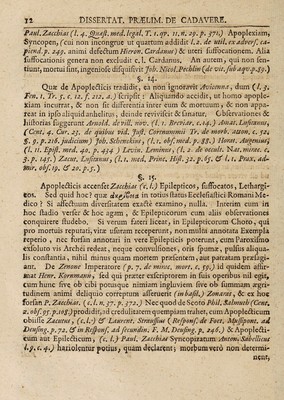 12 DISSERTAT. PRÆLIM. DE CADAVERE.
Paul. Zacchias (l. 4. Quæst. med. legal. T. 1. qv. 11. n. 29. p. 571.) Apoplexiam,
Syncopen, (cui non incongrue ut quartum addidit l. 2. de util. ex advers. ca-
piend. p. 249. animi defectum Hieron. Cardanus) & uteri suffocationem. Alia
suffocationis genera non excludit c. l. Cardanus. An autem, qui non sen-
tiunt, mortui sint, ingeniose disquisivit Joh. Nicol. Pechlin (de vit. sub aqv. p. 59.)
§. 14.
Quæ de Apoplecticis tradidit, ea non ignoravit Avicenna, dum (l. 3.
Fen. 1. Tr. 5. c. 12. f. 212. a.) scripsit: Aliquando accidit, ut homo apople-
xiam incurrat, & non sit differentia inter eum & mortuum, & non appa-
reat in ipso aliquid anhelitus, deinde reviviscit & sanatur. Observationes &
Historias suggerunt Amuald. de vill. nov. (l. 1. Breviar. c. 24.) Amat. Lusitanus,
(Cent. 4. Cur. 23. de quibus vid. Just. Cortnummii Tr. de morb. atton. c. 52.
§. 9. p. 216. judicium) Joh. Schenckius, (l. 1. obs. med. p. 88.) Henr. Augenius,
(l. 11. Epist. med. 40. p. 434) Levin. Lemnius, (l. 2. de occult. Nat. mirac. c.
3. p. 145.) Zacut. Lusitanus, (l. 1. med. Princ. Hist. 32. p. 65. & l. 1. Prax. ad-
mir. obs. 19. & 20. p. 5.)
§. 15.
Apoplecticis accenset Zacchias (c. l.) Epilepticos, suffocatos, Lethargi-
cos. Sed quid hoc? quæ in totius status Ecclesiastici Romani Me-
dico? Si affectuum diversitatem exacte examino, nulla. Interim cum in
hoc stadio verse & hoc agam, & Epilepticorum cum aliis observationes
conquirere studebo. Si verum fateri liceat, in Epilepticorum Choro, qui
pro mortuis reputati, vitæ usuram receperunt, non multa annotata Exempla
reperio, nec forsan annotari in vere Epilepticis poterunt, cum Paroxismo
exsoluto vix Arcthi redeat, neque convulsiones, oris spumæ, pulsus aliqua-
lis constantia, nihil minus quam mortem præsentem, aut patratam præsagi-
ant. De Zenone Imperatore (p. 7. de mirac. mort. c. 59.) id quidem affir-
mat Henr. Kornmann, sed qui præter exscriptorem in suis operibus nil egit,
cum hunc sive ob cibi potusque nimiam ingluviem sive ob summam ægri-
tudinem animi deliquio correptum asseruerit (in basil.) Zonaras, & ex hoc
forsan P. Zacchias, (c. l. n. 77. p. 572.) Nec quod de Scoto Phil. Salmuth (Cent.
2. obs. 95. p. 105.) prodidit, ad credulitatem quempiam trahet, cum Apoplecticum
obiisse Zacutus, (c. l.) & Laurent. Straussius (Respons. de Foet. Mussipont. ad
Deusing. p. 72. & in Respons. ad secundin. F. M. Deusing. p. 246.) & Apoplecti-
cum aut Epilecticum, (c. l.) Paul. Zacchias Syncopizatum Antem. Sabellicus
l. 9. c. 4.) hariolentur potius, quam declarent; morbum vero non determi-
nent,